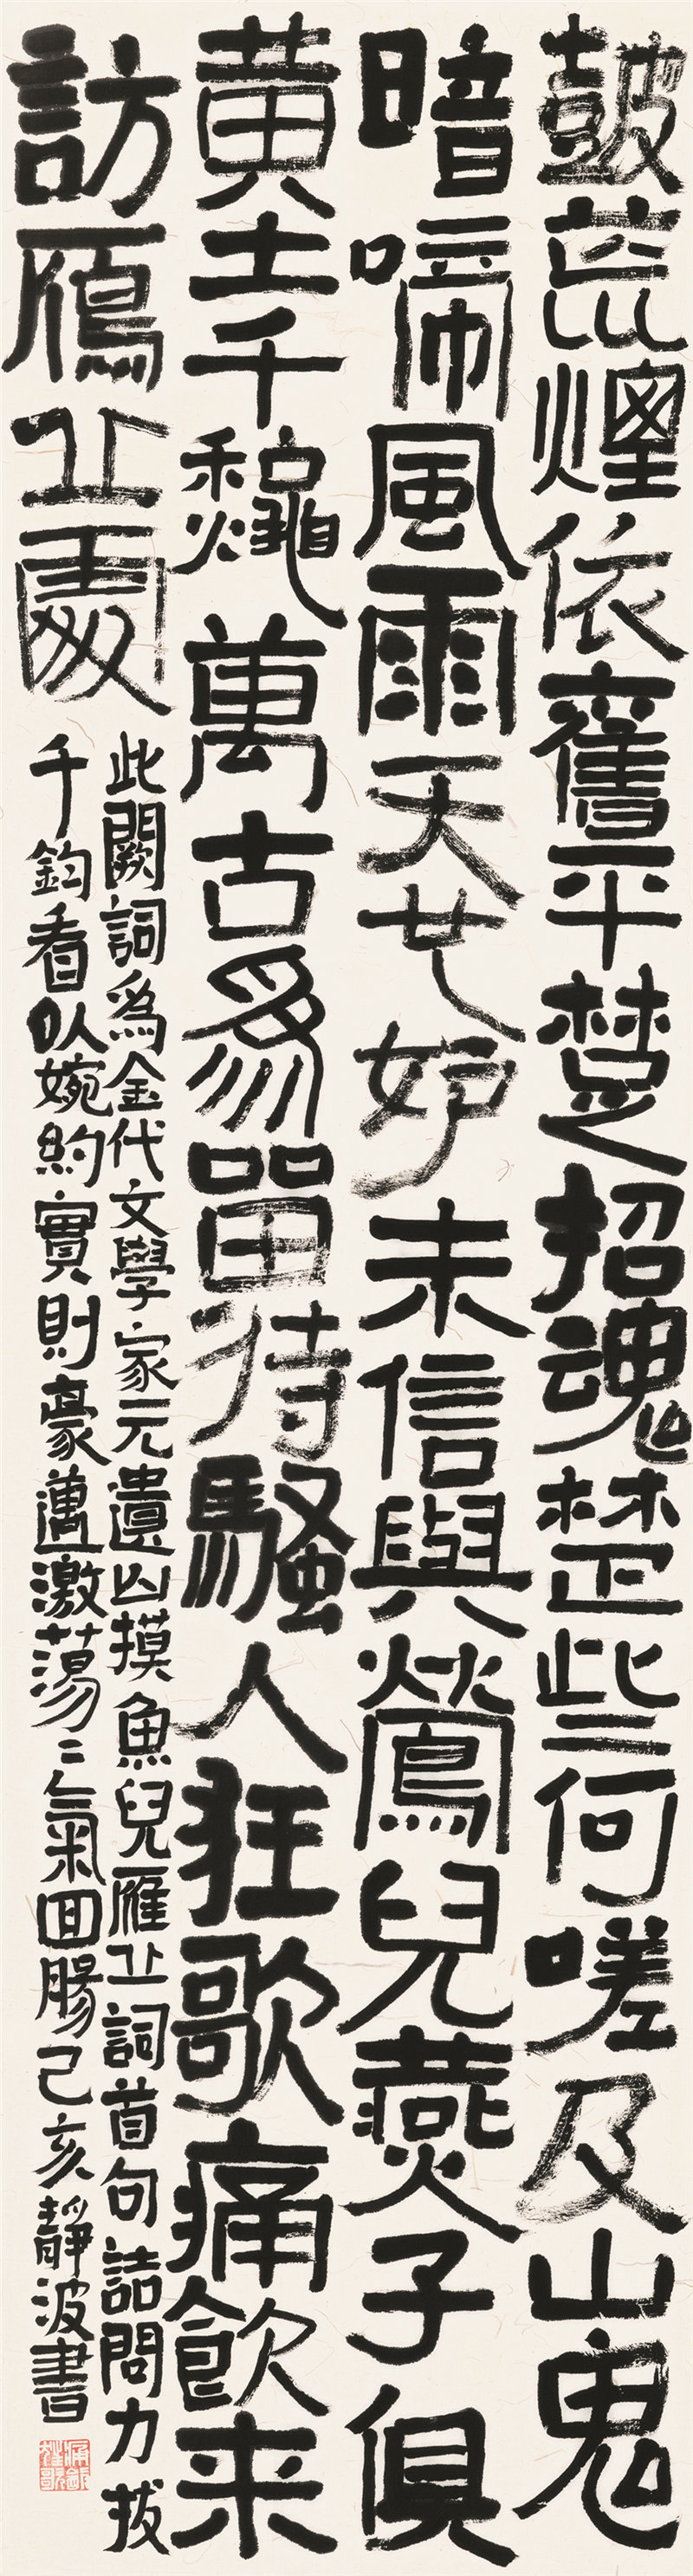 皷茫煙依舊平楚招魂楚些何嗟及山鬼
暗啼風雨天也妒未信與鶯兒燕子俱
黄土千龝萬古爲留待騷人狂歌痛飲来
訪鴈丘處
此闋詞爲金代文學家元遺山摸魚兒雁丘詞首句詰問力拔
千鈞看㕥婉約實則豪邁激蕩〻氣囬腸己亥靜波書